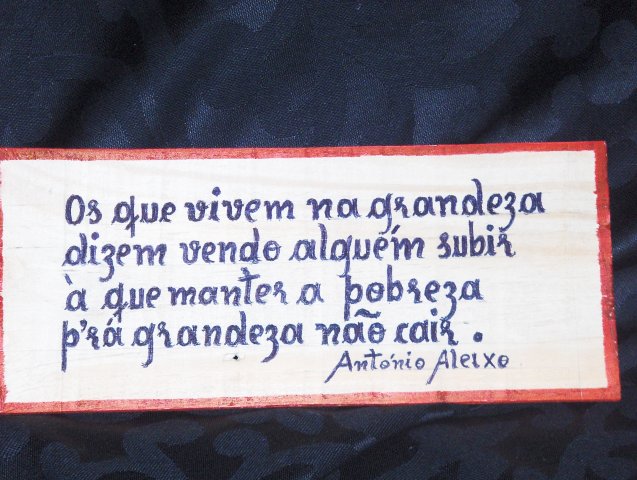 Os que vivem na grandeza
dizem vendo alguém subir
à que manter a pobreza
p'rá grandeza não cair.
António Aleixo